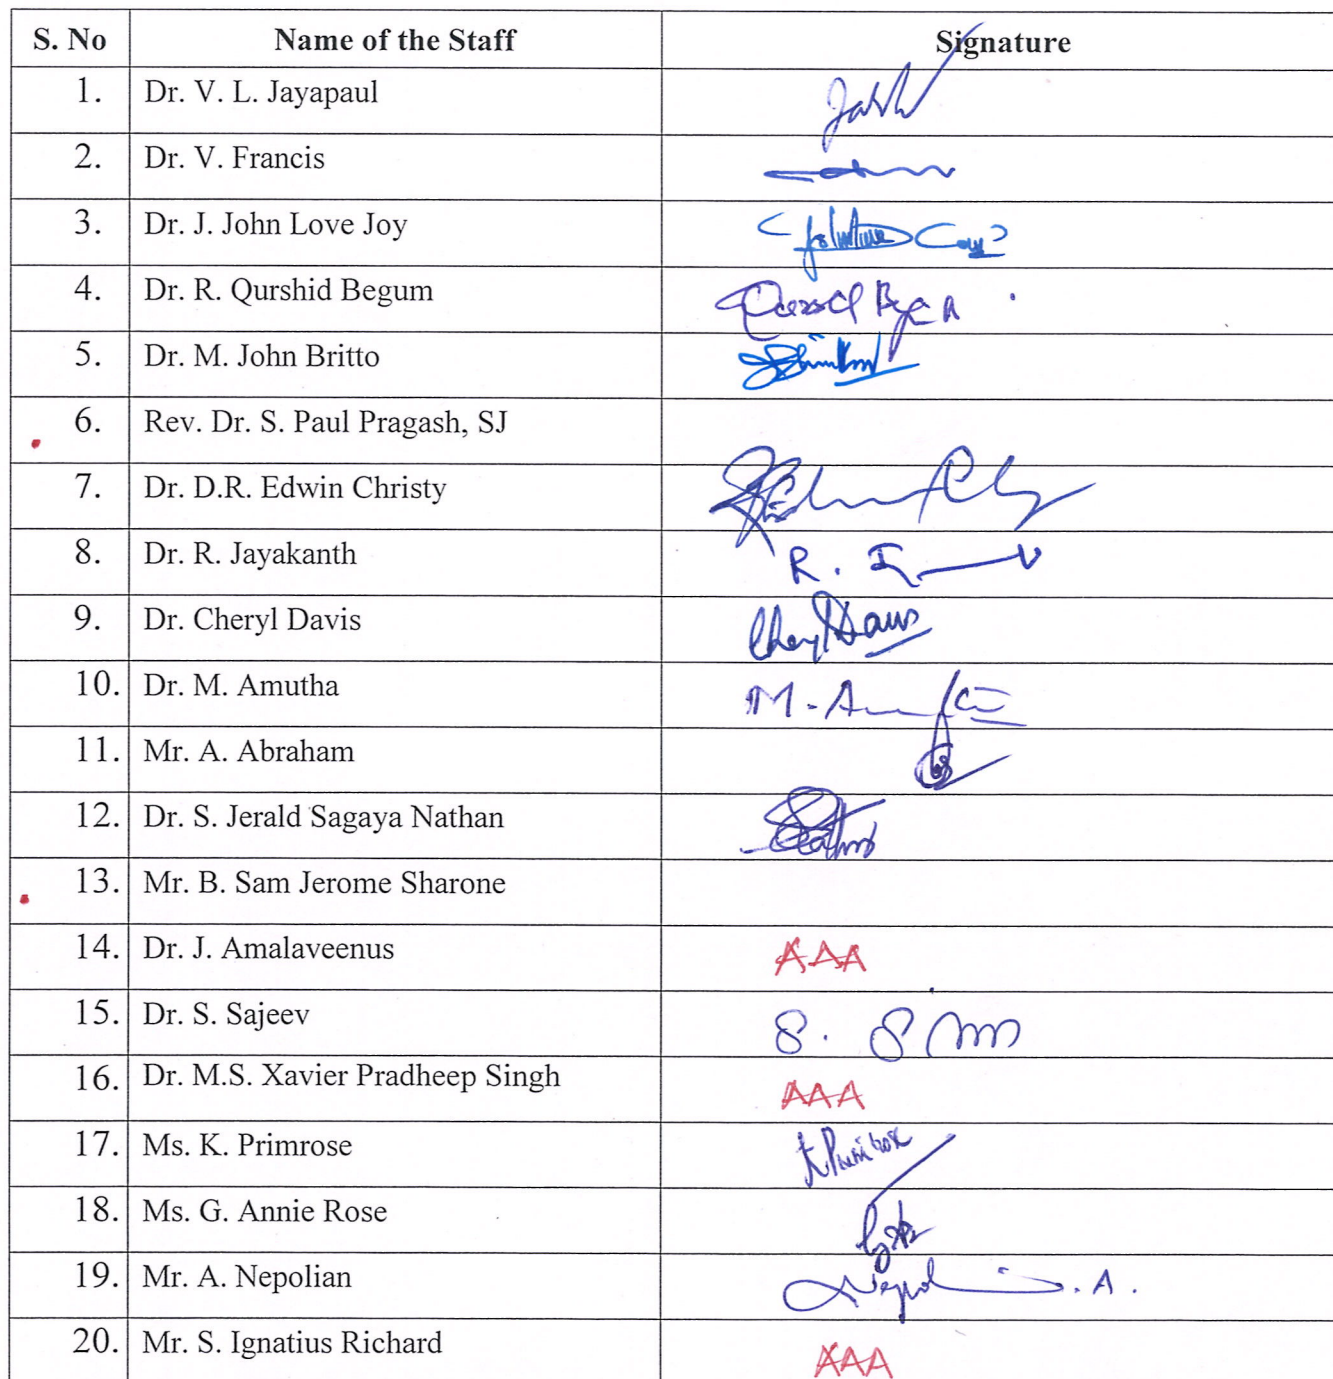 S. No Name of the Staff Signature
1. Dr. V. L. Jayapaul
2. Dr. V. Francis
3. Dr. J. John Love Joy
4. Dr. R. Qurshid Begum
5. Dr. M. John Britto
6. Rev. Dr. S. Paul Pragash, SJ
7. Dr. D.R. Edwin Christy
8. Dr. R. Jayakanth R.
9. Dr. Cheryl Davis
10. Dr. M. Amutha
11. Mr. A. Abraham
12. Dr. S. Jerald Sagaya Nathan
13. Mr. B. Sam Jerome Sharone
14. Dr. J. Amalaveenus AAA
15. Dr. S. Sajeev
16. Dr. M.S. Xavier Pradheep Singh AAA
17. Ms. K. Primrose
18. Ms. G. Annie Rose
19. Mr. A. Nepolian
20. Mr. S. Ignatius Richard AAA